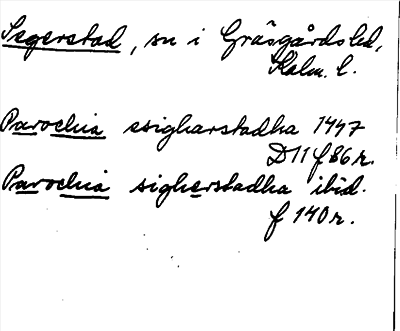 Segerstad, sn i Gräsgårds hd,
Kalm. l.
Parochia esigharstadha 1447
D11 f 86 r.
Parochia sigherstadha ibid.
f 140 r.